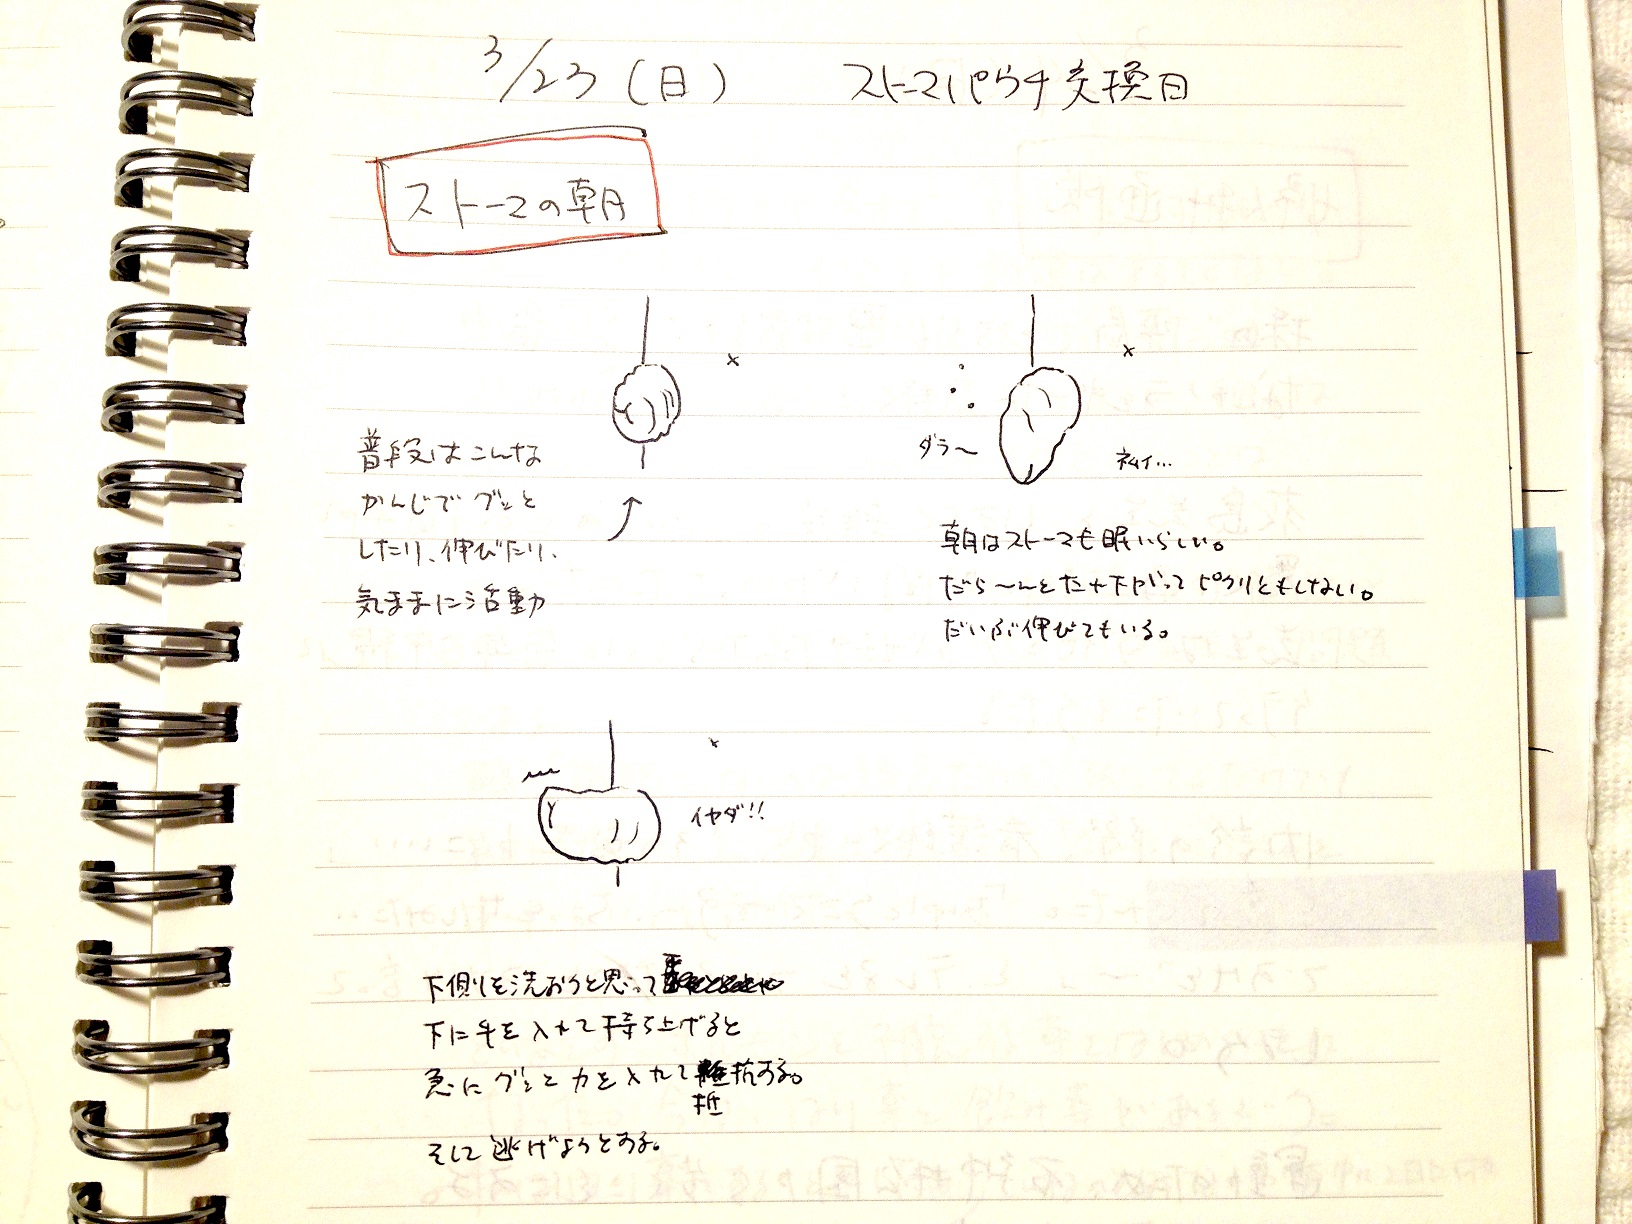 3/23(日) ストーマパウチ交換日
ストーマの朝
普段はこんな
かんじでグッと
したり、伸びたり、
気ままに活動
ダラ〜
ネムイ…
朝はストーマも眠いらしい。
だら〜んとたれ下がってピクリともしない。
だいぶ伸びてもいる。
イヤダ!!
下側を洗おうと思って
下に手を入れて持ち上げると
急にグッと力を入れて抵抗する。
そして逃げようとする。